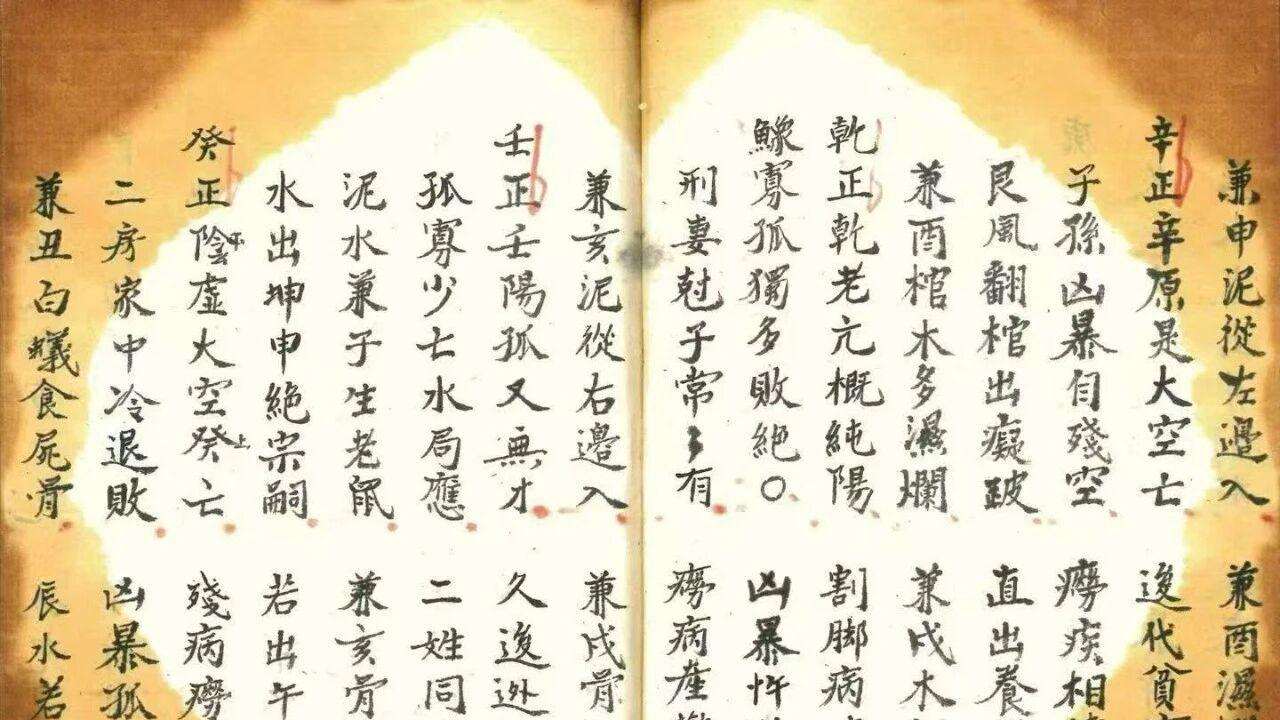 兼申泥從左邊入 兼酉濕
辛正辛原是大空亡 後代貧
子孫凶暴自殘空 癆疾相
艮風翻棺出癡跛 直出養
兼酉棺木多濕爛 兼戍木
乾正乾老亢概純陽 割脚病
鰥寡孤獨多敗絕〇 凶暴忤
刑妻尅子常〻有 癆病產
兼亥泥從右邊入 兼戍骨
壬正壬陽孤又無才 久後迯
孤寡少亡水局應 二姓同
泥水兼子生老鼠 兼亥骨
水出坤申絕宗嗣 若出午
癸正陰下虛大空癸上亡 殘病癆
二房家中冷退敗 凶暴孤
兼丑白蟻食屍骨 辰水若